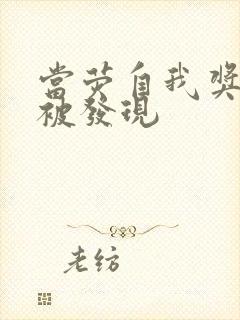 當荧自我獎
被發現
老纺